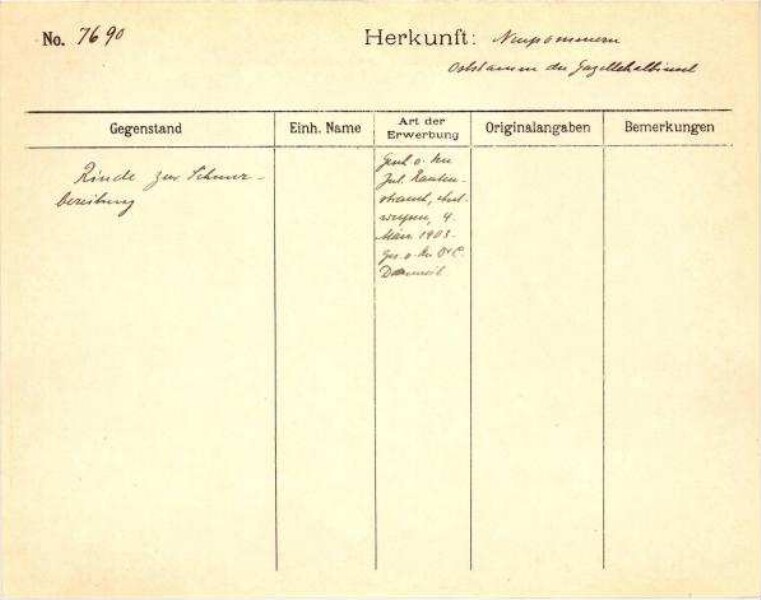 No. 7690
Herkunft: Neupommern
Oststamm der Gazellehalbinsel
Gegenstand
Einh. Name
Art der Erwerbung
Originalangaben
Bemerkungen
Rinde zur Schnur-
bereitung
Gesch. v. Hn
Jul. Rauten-
strauch, Ant-
werpen, 4.
März 1903.
Ges. v. Hn